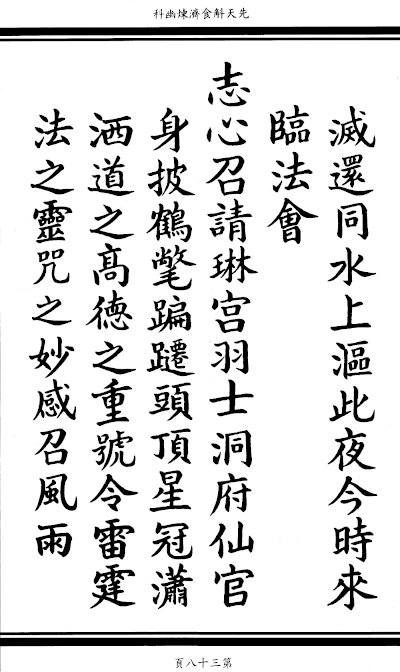 先天斛食濟煉幽科
滅還同水上漚此夜今時來
臨法會
志心召請琳宫羽士洞府仙官
身披鶴氅蹁躚頭頂星冠瀟
洒道之髙德之重號令雷霆
法之靈咒之妙感召風雨
第三十八頁